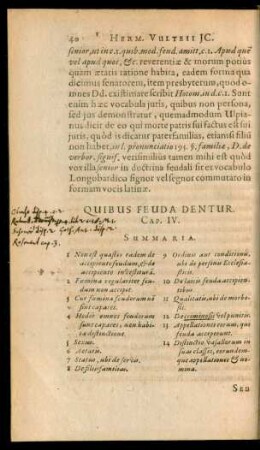 40 HERM. VULTEII JC.
senior, ut in c. 1. quib. mod. feud. amitt. c. 1. Apud quẽ
vel apud quos, &c. reverentiæ & morum potius
quam ætatis ratione habita, eadem forma qua
dicimus senatorem, item presbyterum, quod o-
mnes Dd. existimare scribit in d. c. 1. Sunt
enim hæc vocabula juris, quibus non persona,
sed jus demonstratur, quemadmodum Ulpi-
anus dicit de eo qui morte patris sui factus est sui
juris, quòd is dicatur paterfamilias, etiamsi filii
non habet, in l. pronunciatio 195. §. familiæ, D. de
verbor. signif. verisimilius tamen mihi est quòd
vox illa senior in doctrina feudali sit ex vocabulo
Longobardico signor vel segnor commutato in
formam vocis latinæ.
QUIBUS FEUDA DENTUR.
CAP. IV.
SUMMARIA.
1 Non est quæstio eadem de
accipiente feudum, & de
accipiente investituram.
2 Fœmina regulariter feu-
dum non accipit.
3 Cur fœmina feudorum nõ
sint capaces.
4 Hodie omnes feudorum
sunt capaces, non habi-
ta distinctione.
5 Sexus.
6 Aetatis.
7 Status, ubi de servis.
8 De filiisfamilias.
9 Ordinis aut conditionis,
ubi de personis Ecclesia-
sticis.
10 De laicis feuda accipien-
tibus
11 Qualitatis, ubi de morbo-
sis.
12 De criminosis vel punitis.
13 Appellationes eorum, qui
feuda accipiunt.
14 Distinctio Vasallorum in
suas classes, eorundem-
que appellationes & no-
mina.
Sed